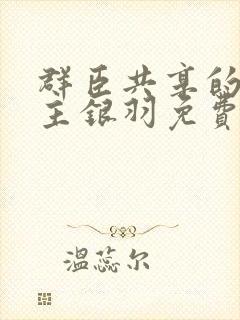 群臣共享的
主银羽免費
温蕊尔